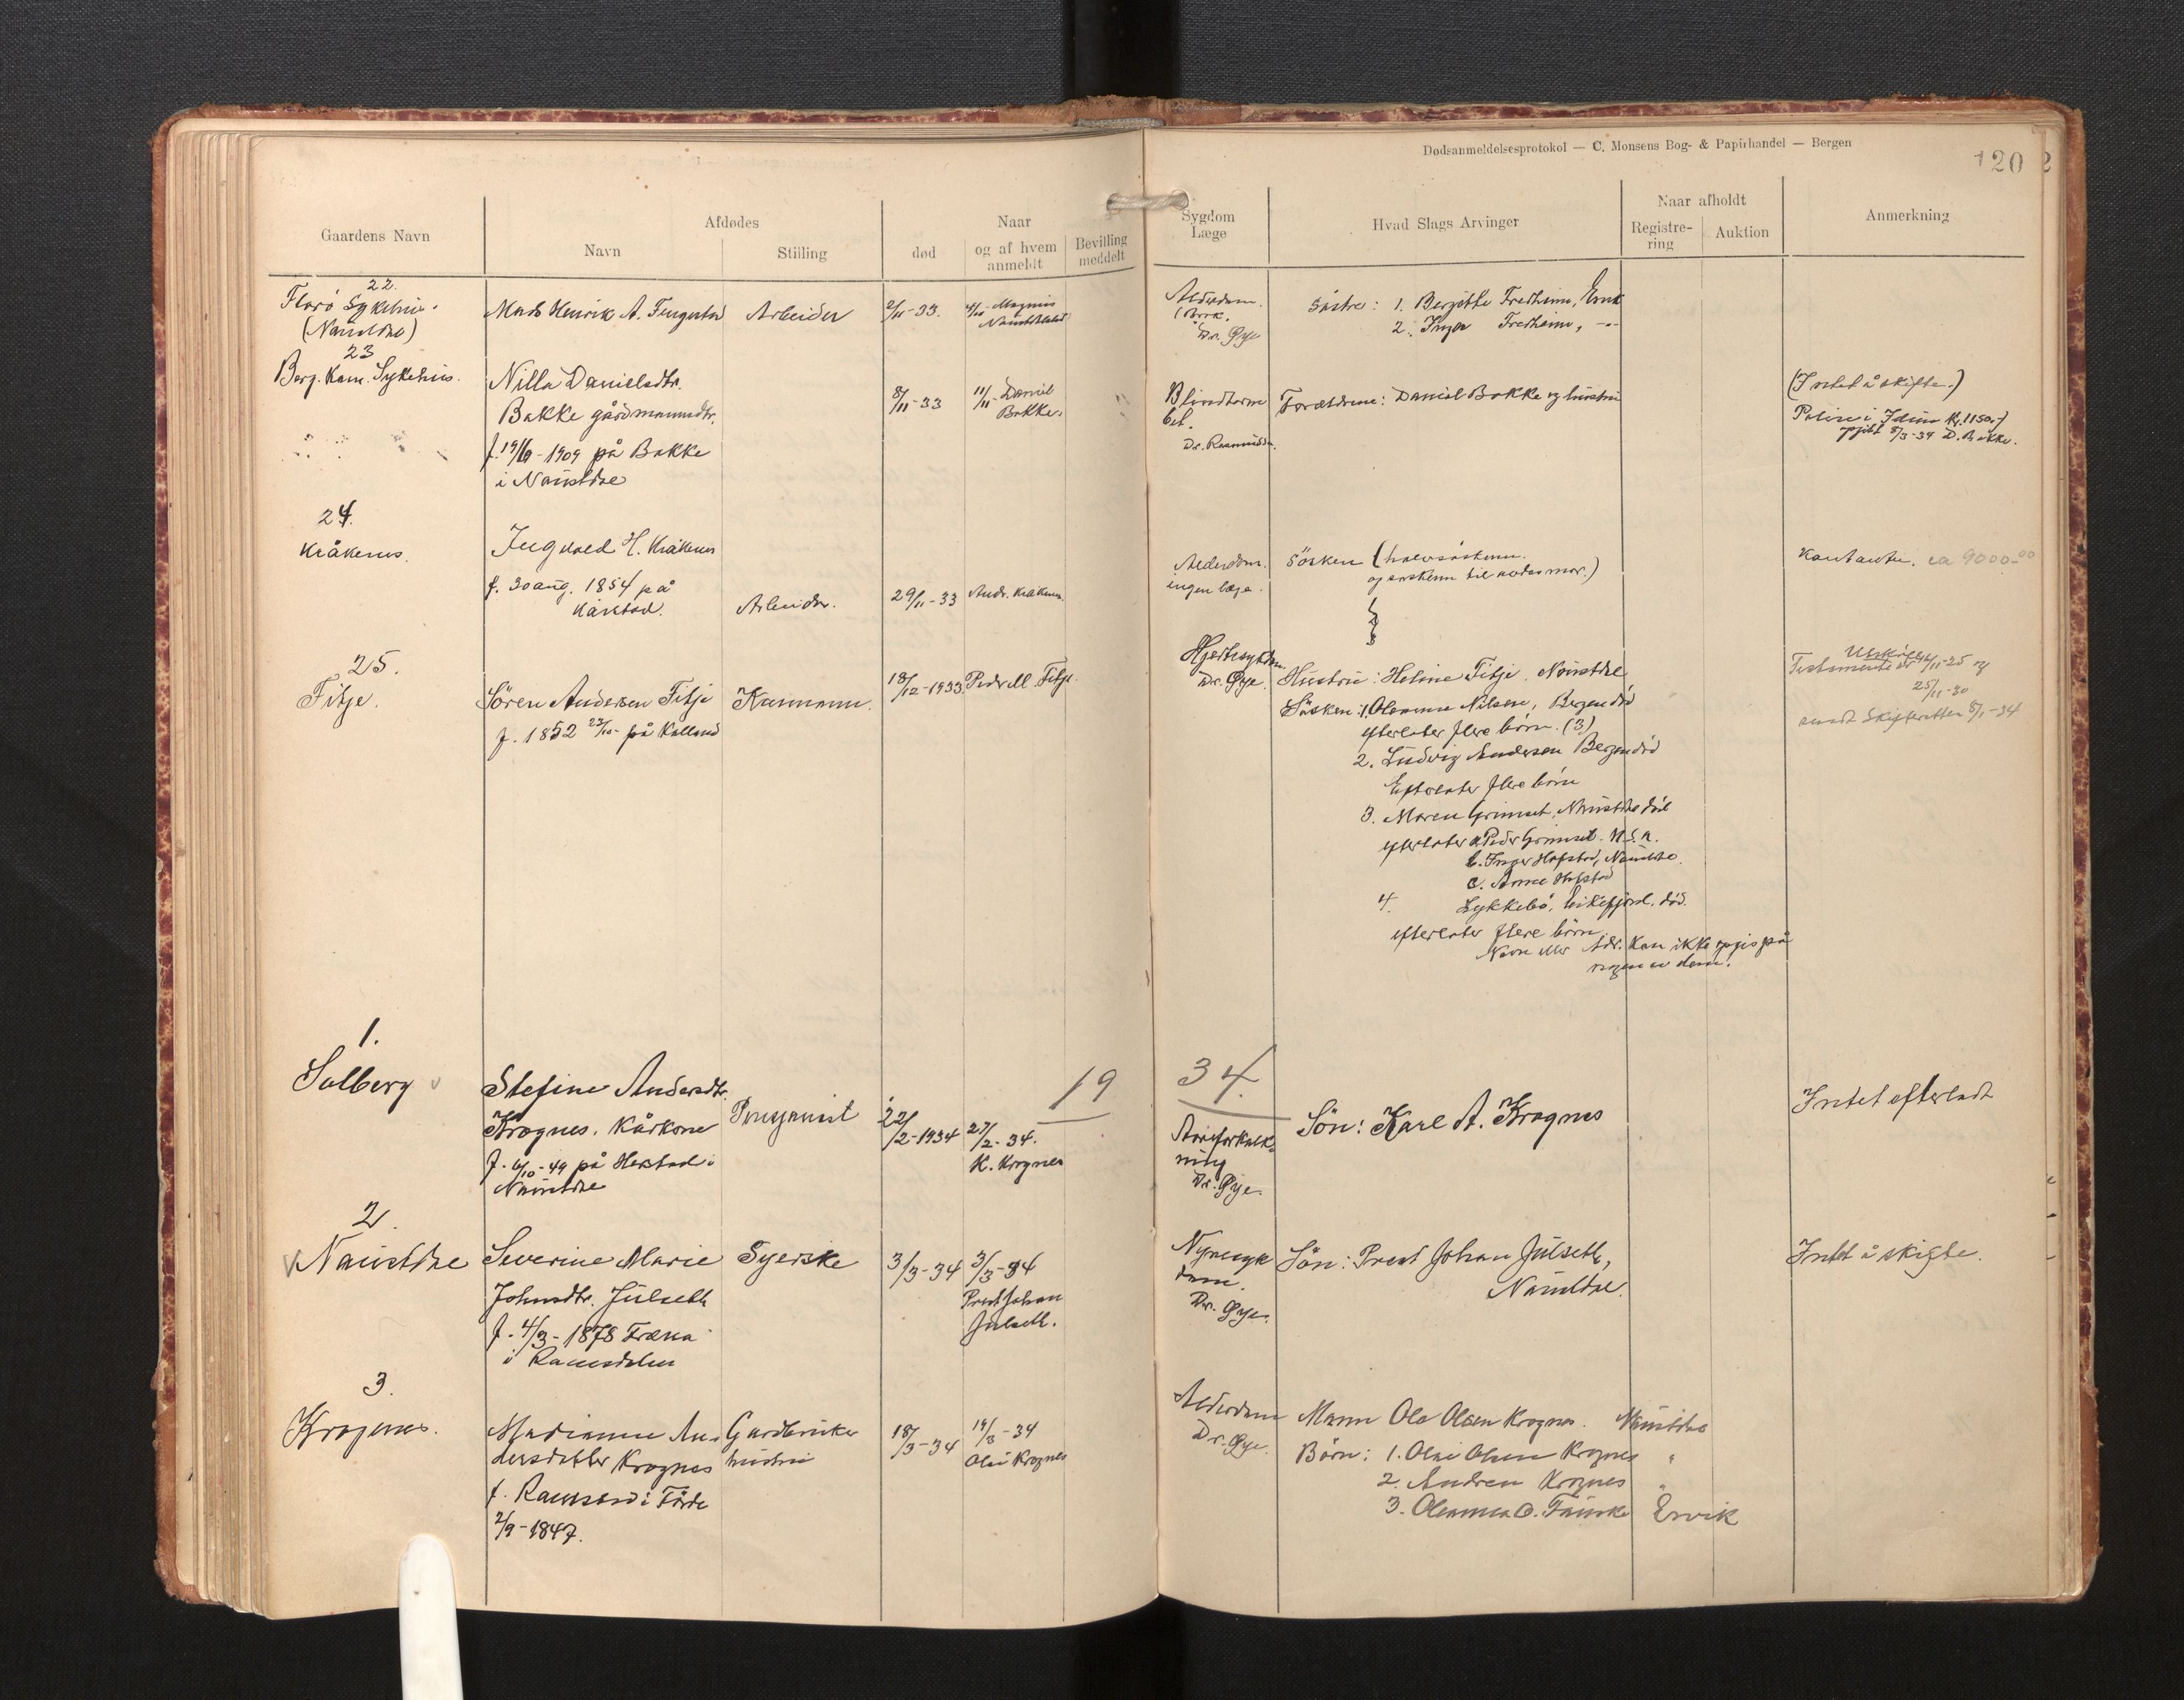 Dødsanmeldelsesprotokol — C. Monsens Bog- & Papirhandel — Bergen
120
Gaardens Navn
Afdødes
Navn
Stilling
Naar
død
og af hvem anmeldt
Bevilling meddelt
Sygdom
Læge
Hvad Slags Arvinger
Naar afholdt
Registre-
ring
Auktion
Anmerkning
22.
Florö Sykehus.
(Naustdal)
Mads Henrik A.
Arbeider
2/11-33.
Magnus
Naustdal
Alderdom.
Dr. Øye
Søstre: 1. Bergitte Fredheim,
2. Inger Fredheim, -"-
23
Berg. Kom. Sykehus.
Nilla Danielsdtr.
Bakke gårdmannsdtr.
f. 19/9-1909 på Bakke
i Naustdal
8/11-33
11/11- Daniel
Bakke.
Blindtarm
bet.
Dr. Rasmussen.
Forældrene: Daniel Bakke og hustru
(Intet å skifte.)
Polise i Idun kr. 1150,-)
8/3-34 D. Bakke.
24.
Kråkenes.
Ingvald H. Kråkenes
f. 30 aug. 1854 på
Kårstad.
Arbeider.
29/11-33
Andr. Kråkenes
Alderdom.
ingen læge.
Sösken (halvsöskenn
til avdødes mor.)
Kontanter. ca 9000.00
25.
Fitje.
Sören Andersen Fitje
f. 1852 23/10- på Kalland
Kaarmann.
18/12-1933
Peder M. Fitje
Hjertesykdom.
Dr. Øye.
Hustru: Heline Fitje. Naustdal
Søsken: 1. Oleanna Nilsen, Bergen död
efterlater flere børn. (3)
2. Ludvig Andersen Bergen död
Efterlater flere børn
3. Maren Grimset, Naustdal död
efterlater a. Peder Grimset. U.S.A.
b. Inger Hofstad, Naustdal.
c. Anne Hofstad
4. Lykkebø, Eikefjord. död.
efterlater flere børn
Navn eller Adr. kan ikke opgis på
nogen av dem.
Utskrift
Testamente av 14/11-25 og
25/11-30
sendt Skifteretten 8/1-34
1934.
1.
Solberg
Stefine Andersdtr.
Krognes. Kårkone
f. 6/10-49 på Hestad i
Naustdal
Pensjonist
22/2-1934
27/2-34.
K. Krognes
Åreforkalk-
ning
Dr. Øye.
Sön: Karl A. Krognes
Intet efterladt
2.
Naustdal
Severine Marie
Johnsdtr. Julseth
f. 4/3-1878 Fræna
i Romsdalen
Syerske
3/3-34
3/3-34
Prest Johan
Julseth.
Nyresyk
dom.
Dr. Øye.
Sön: Prest Johan Julseth,
Naustdal.
Intet å skifte.
3.
Krognes.
Madianne An-
dersdatter Krognes
f. Ramsund i Förde
2/9-1847.
Gardbruker
hustru
18/3-34
19/3-34
Olai Krognes
Alderdom
Dr. Øye.
Mann Ola Olsen Krognes. Naustdal
Børn: 1. Olai Olsen Krognes "
2. Andrea Krognes "
3. Oleanna O.